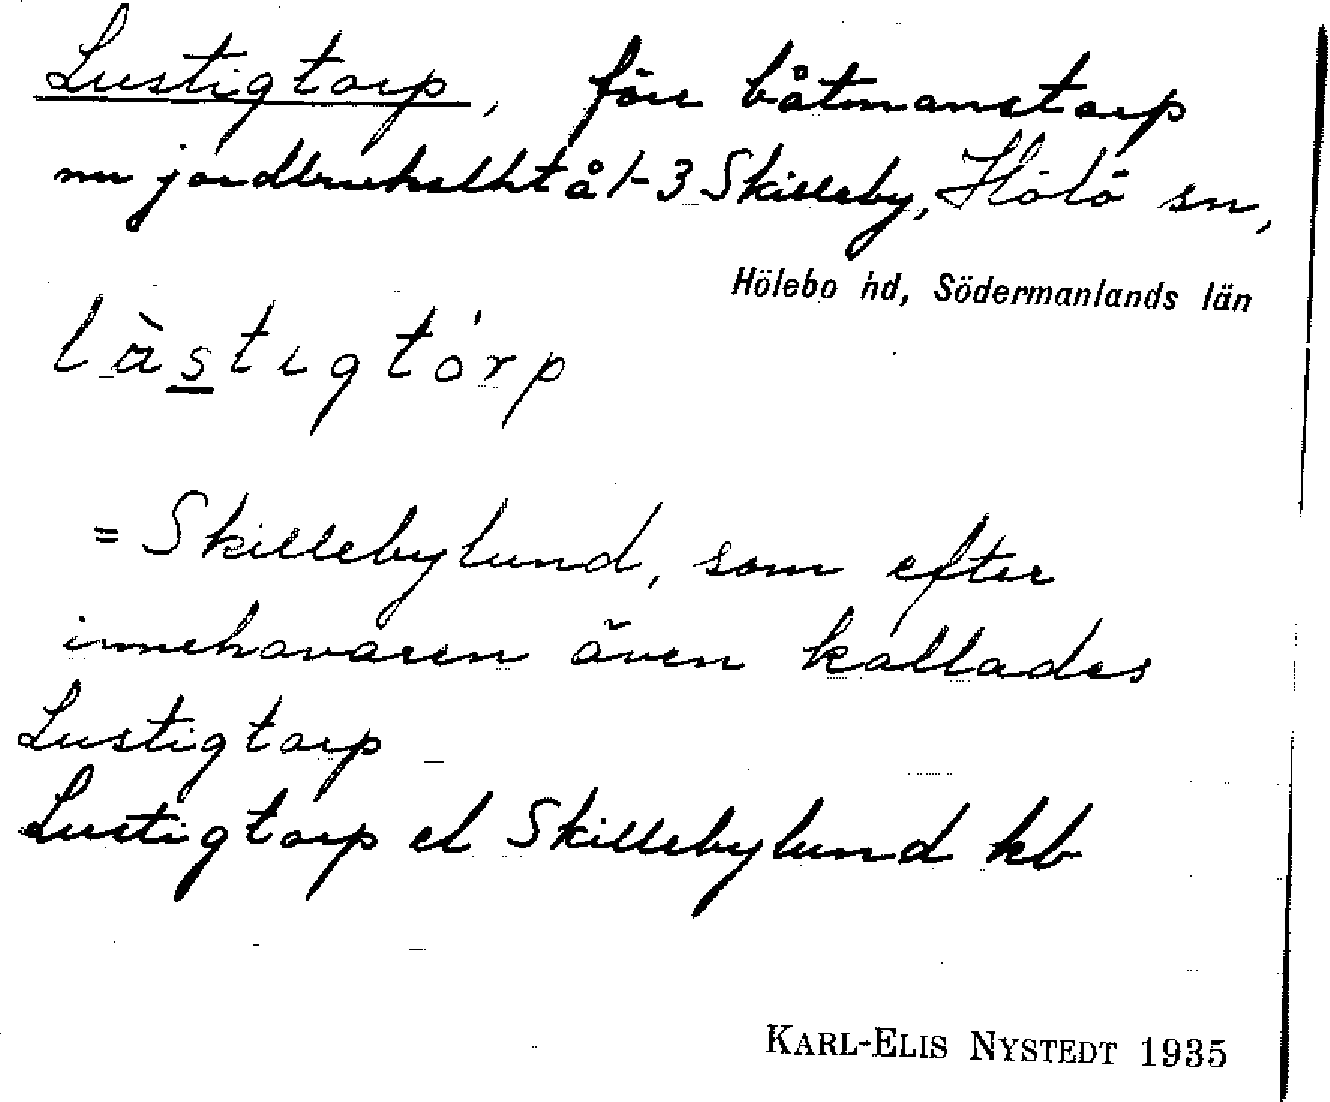 Lustigtorp, förr båtmanstorp
nu jordbrukslht å 1-3 Skilleby, Hölö sn,
Hölebo hd, Södermanlands län
làstɩgtórp
= Skillebylund, som efter
innehavaren även kallades
Lustigtorp
Lustigtorp el Skillebylund kb
KARL-ELIS NYSTEDT 1935